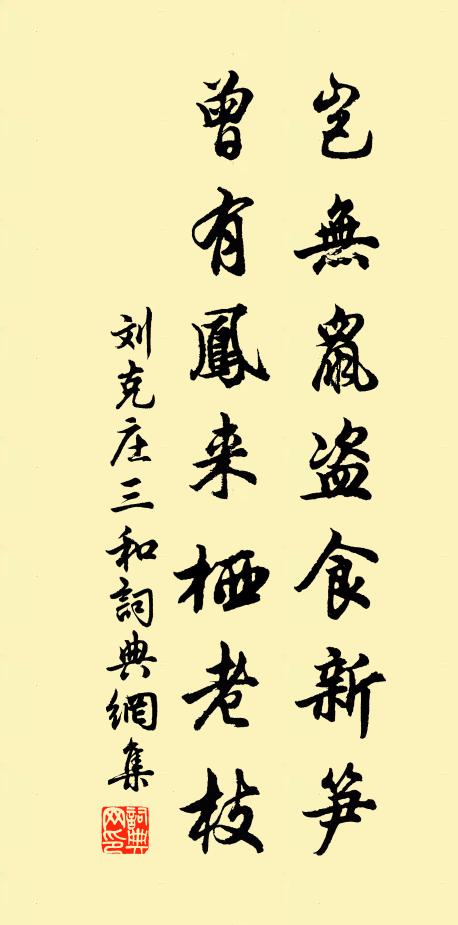 岂無鼠盗食新笋
曾有鳳来栖老枝
刘克庄三和詞典網集
詞典网印